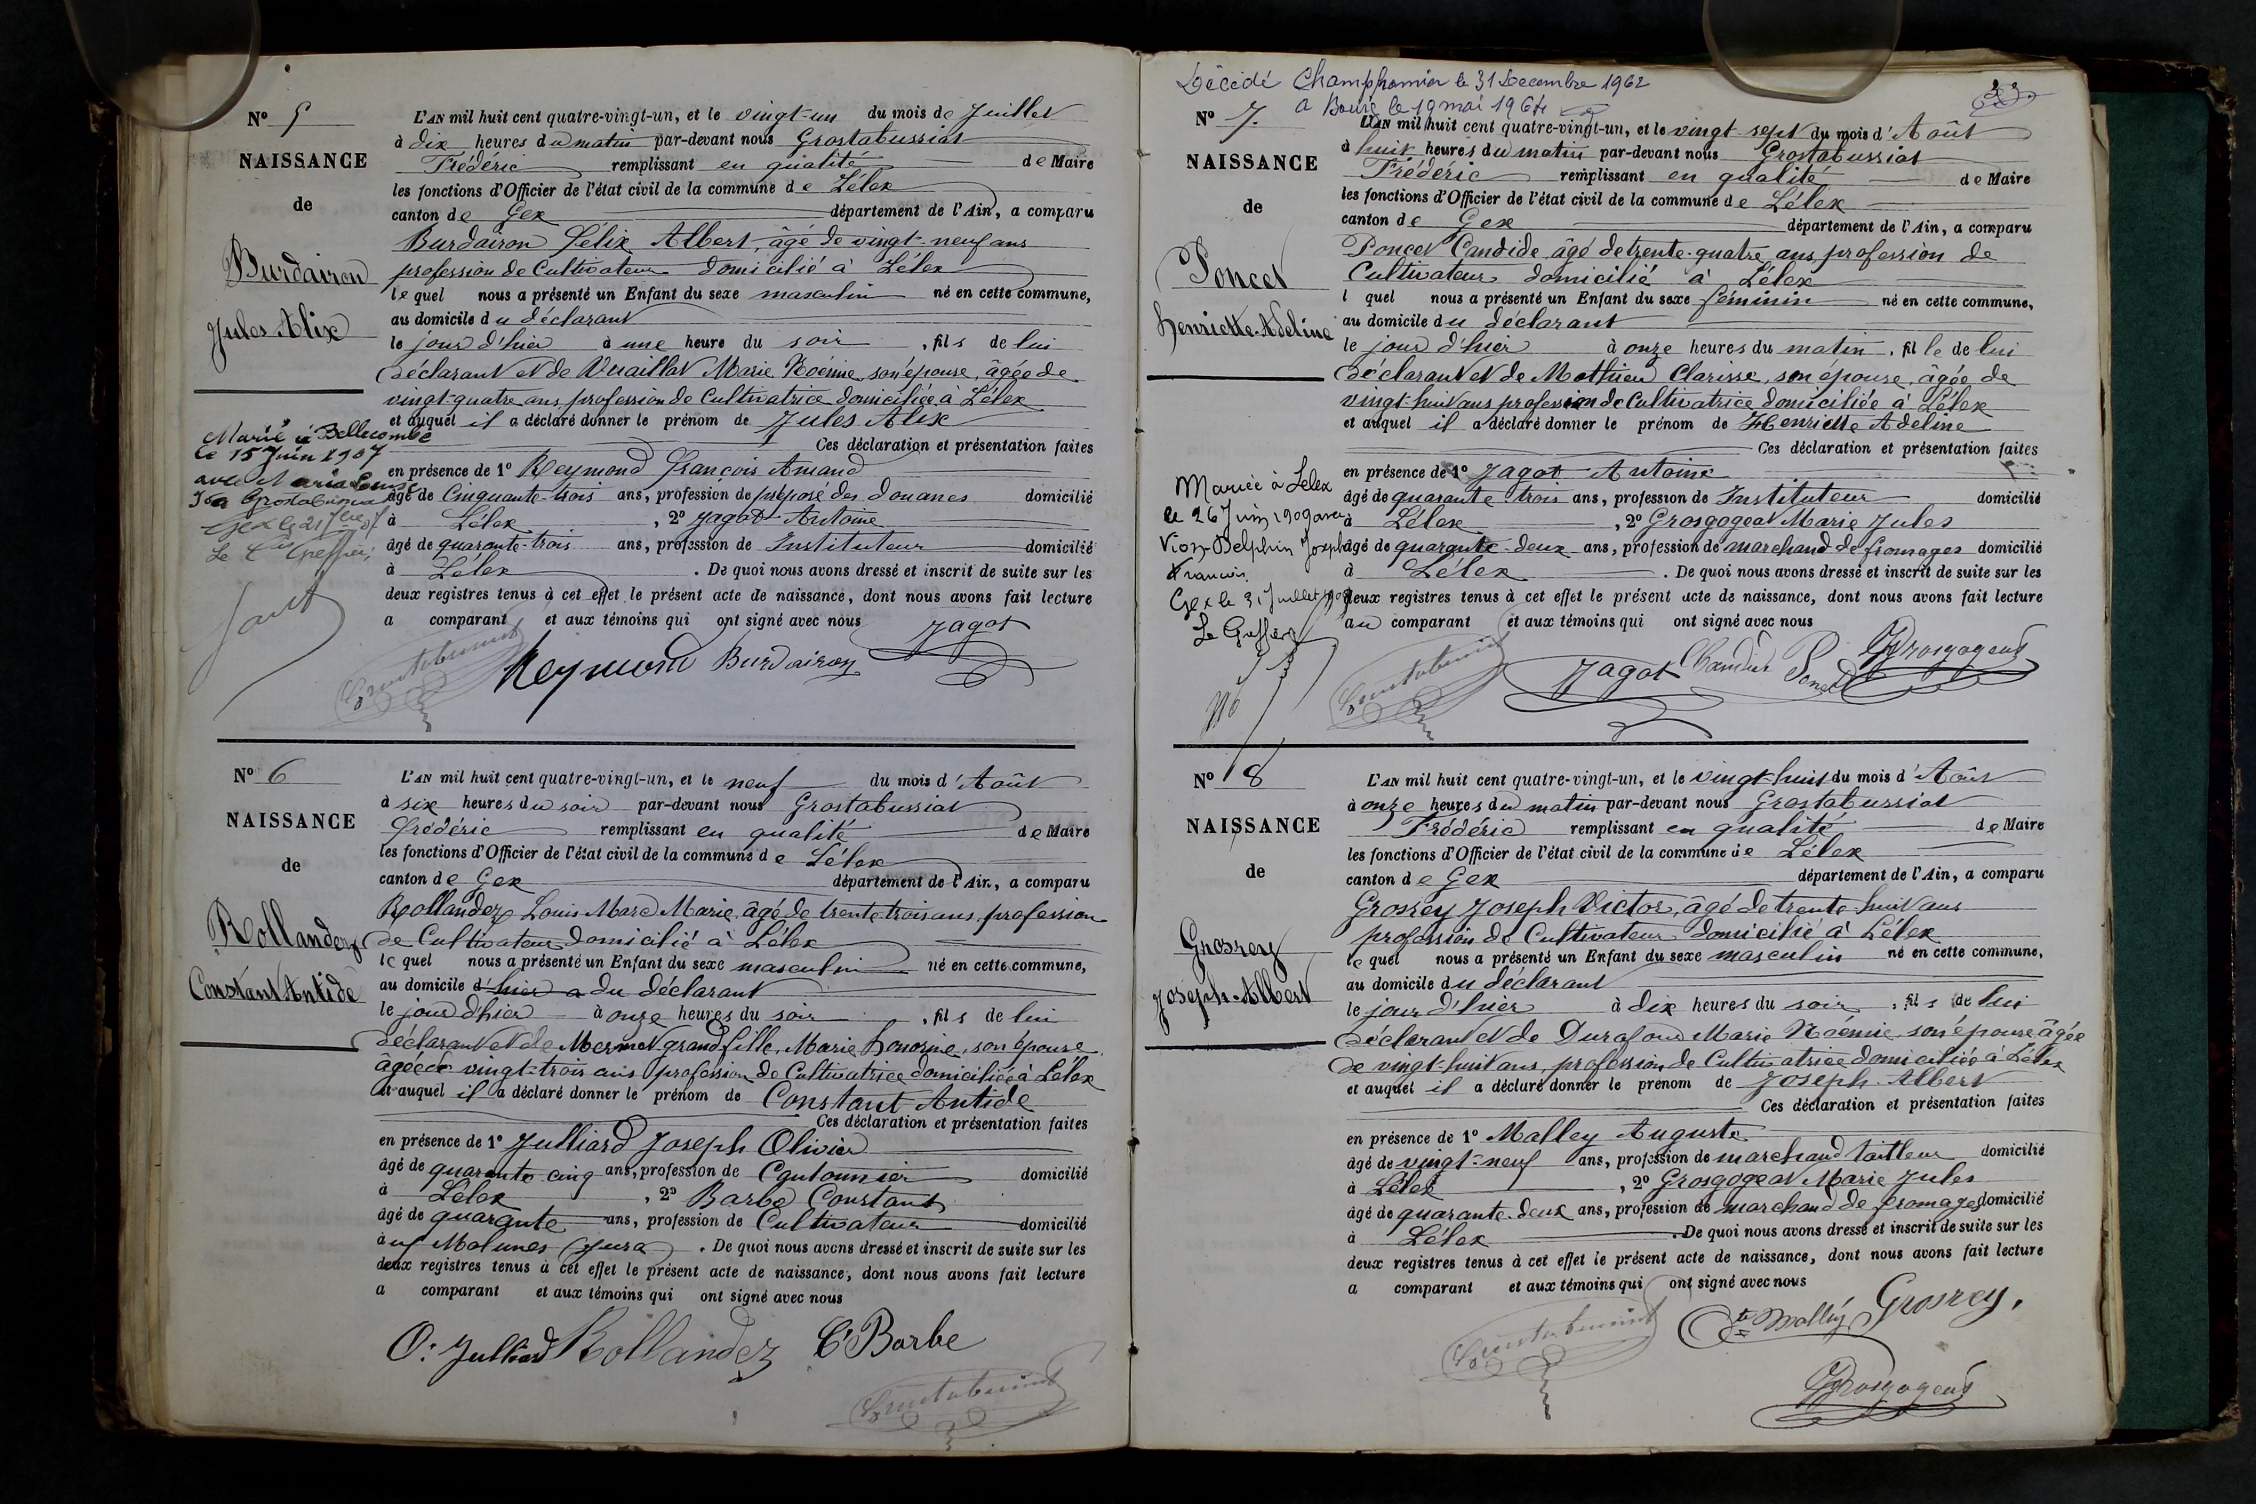 N° 5
NAISSANCE
de
Burdairon
Jules Alix
Marié à Bellecombe
le 15 Juin 1907
avec Maria Louise
Gex le 21
Le Greffier
L'AN mil huit cent quatre-vingt-un, et le vingt-un du mois de Juillet
à dix heures du matin par-devant nous Grostabussiat
Frédéric remplissant en qualité de Maire
les fonctions d'Officier de l'état civil de la commune de Lélex
canton de Gex département de l'Ain, a comparu
Burdairon Félix Albert, âgé de vingt-neuf ans
profession de Cultivateur domicilié à Lélex
lequel nous a présenté un Enfant du sexe masculin né en cette commune,
au domicile du déclarant
le jour d'hier à une heure du soir, fils de lui
déclarant et de Vuaillat Marie Noémie, son épouse, âgée de
vingt-quatre ans, profession de Cultivatrice domiciliée à Lélex
et auquel il a déclaré donner le prénom de Jules Alix
Ces déclaration et présentation faites
en présence de 1° Reymond François Amand
âgé de Cinquante-trois ans, profession de préposé des douanes domicilié
à Lélex, 2° Jagot Antoine
âgé de quarante-trois ans, profession de Instituteur domicilié
à Lélex. De quoi nous avons dressé et inscrit de suite sur les
deux registres tenus à cet effet le présent acte de naissance, dont nous avons fait lecture
a comparant et aux témoins qui ont signé avec nous
Jagot
Reymond Burdairon
Grostabussiat
N° 6
NAISSANCE
de
Rollandez
Constant Antide
L'AN mil huit cent quatre-vingt-un, et le neuf du mois d'Août
à six heures du soir par-devant nous Grostabussiat
Frédéric remplissant en qualité de Maire
les fonctions d'Officier de l'état civil de la commune de Lélex
canton de Gex département de l'Ain, a comparu
Rollandez Louis Marc Marie, âgé de trente-trois ans, profession
de Cultivateur domicilié à Lélex
lequel nous a présenté un Enfant du sexe masculin né en cette commune,
au domicile d'hier a du déclarant
le jour d'hier à onze heures du soir, fils de lui
déclarant et de Mermet grand fille, Marie Honorine, son épouse
âgée de vingt-trois ans profession de Cultivatrice domiciliée à Lélex
et auquel il a déclaré donner le prénom de Constant Antide
Ces déclaration et présentation faites
en présence de 1° Julliard Joseph Olivier
âgé de quarante cinq ans, profession de Cantonnier domicilié
à Lélex, 2° Barbe Constant
âgé de quarante ans, profession de Cultivateur domicilié
à Molunes (Jura). De quoi nous avons dressé et inscrit de suite sur les
deux registres tenus à cet effet le présent acte de naissance, dont nous avons fait lecture
a comparant et aux témoins qui ont signé avec nous
O: Julliard Rollandez C Barbe
Grostabussiat
Décédé Champfromier le 31 Decembre 1962
le 19 mai 1964
N° 7
NAISSANCE
de
Poncet
Henriette-Adeline
Mariée à Lelex
le 26 Juin 1909 avec
Vion-Delphin Joseph
François
Gex le 31 Juillet 1909
Le Greffier
L'AN mil huit cent quatre-vingt-un, et le vingt sept du mois d'Août
à huit heures du matin par-devant nous Grostabussiat
Frédéric remplissant en qualité de Maire
les fonctions d'Officier de l'état civil de la commune de Lélex
canton de Gex département de l'Ain, a comparu
Poncet Candide, âgé de trente-quatre ans profession de
Cultivateur domicilié à Lélex
l quel nous a présenté un Enfant du sexe féminin né en cette commune,
au domicile du déclarant
le jour d'hier à onze heures du matin, fille de lui
déclarant et de Mathieu Clarisse, son épouse, âgée de
vingt-huit ans profession de Cultivatrice domiciliée à Lélex
et auquel il a déclaré donner le prénom de Henriette Adeline
Ces déclaration et présentation faites
en présence de 1° Jagot Antoine
âgé de quarante trois ans, profession de Instituteur domicilié
à Lélex, 2° Grosgogeat Marie Jules
âgé de quarante-deux ans, profession de marchand de fromages domicilié
à Lélex. De quoi nous avons dressé et inscrit de suite sur les
deux registres tenus à cet effet le présent acte de naissance, dont nous avons fait lecture
au comparant et aux témoins qui ont signé avec nous
Grostabussiat Jagot Candide Poncet Grosgogeat
N° 8
NAISSANCE
de
Grosrey
Joseph-Albert
L'AN mil huit cent quatre-vingt-un, et le vingt-huit du mois d'Août
à onze heures du matin par-devant nous Grostabussiat
Frédéric remplissant en qualité de Maire
les fonctions d'Officier de l'état civil de la commune de Lélex
canton de Gex département de l'Ain, a comparu
Grosrey Joseph Victor, âgé de trente-huit ans
profession de Cultivateur domicilié à Lélex
lequel nous a présenté un Enfant du sexe masculin né en cette commune,
au domicile du déclarant
le jour d'hier à dix heures du soir, fils de lui
déclarant et de Durafour Marie Noémie son épouse âgée
de vingt-huit ans, profession de Cultivatrice domiciliée à Lélex
et auquel il a déclaré donner le prénom de Joseph Albert
Ces déclaration et présentation faites
en présence de 1° Malley Auguste
âgé de vingt-neuf ans, profession de marchand tailleur domicilié
à Lélex, 2° Grosgogeat Marie Jules
âgé de quarante-deux ans, profession de marchand de fromages domicilié
à Lélex. De quoi nous avons dressé et inscrit de suite sur les
deux registres tenus à cet effet le présent acte de naissance, dont nous avons fait lecture
a comparant et aux témoins qui ont signé avec nous
Grostabussiat Malley Grosrey
Grosgogeat